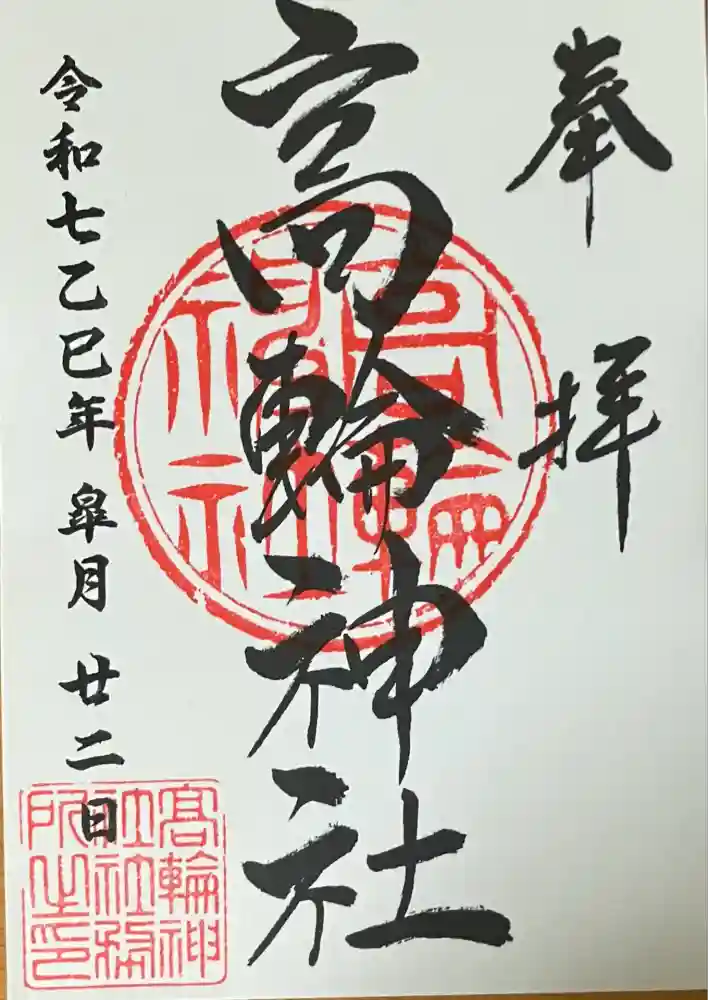 奉拝
高輪神社
令和七乙巳年 皐月 廿二日
高輪神社
髙輪神
社社務
所之印